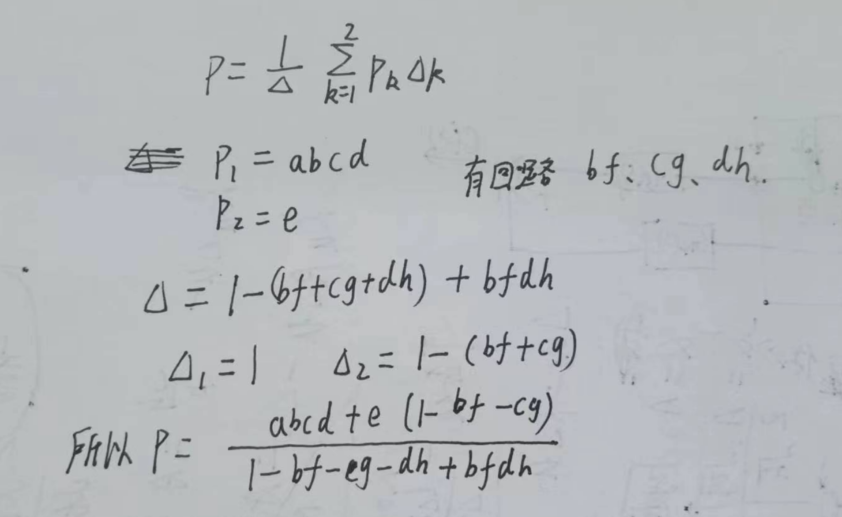 P = 1/Δ ∑_{k=1}^{2} P_k Δ_k
P₁ = abcd 有回路 bf、cg、dh.
P₂ = e
Δ = 1-(bf+cg+dh) + bfdh
Δ₁ = 1 Δ₂ = 1-(bf+cg)
所以 P = abcd+e(1-bf-cg) / 1-bf-eg-dh+bfdh